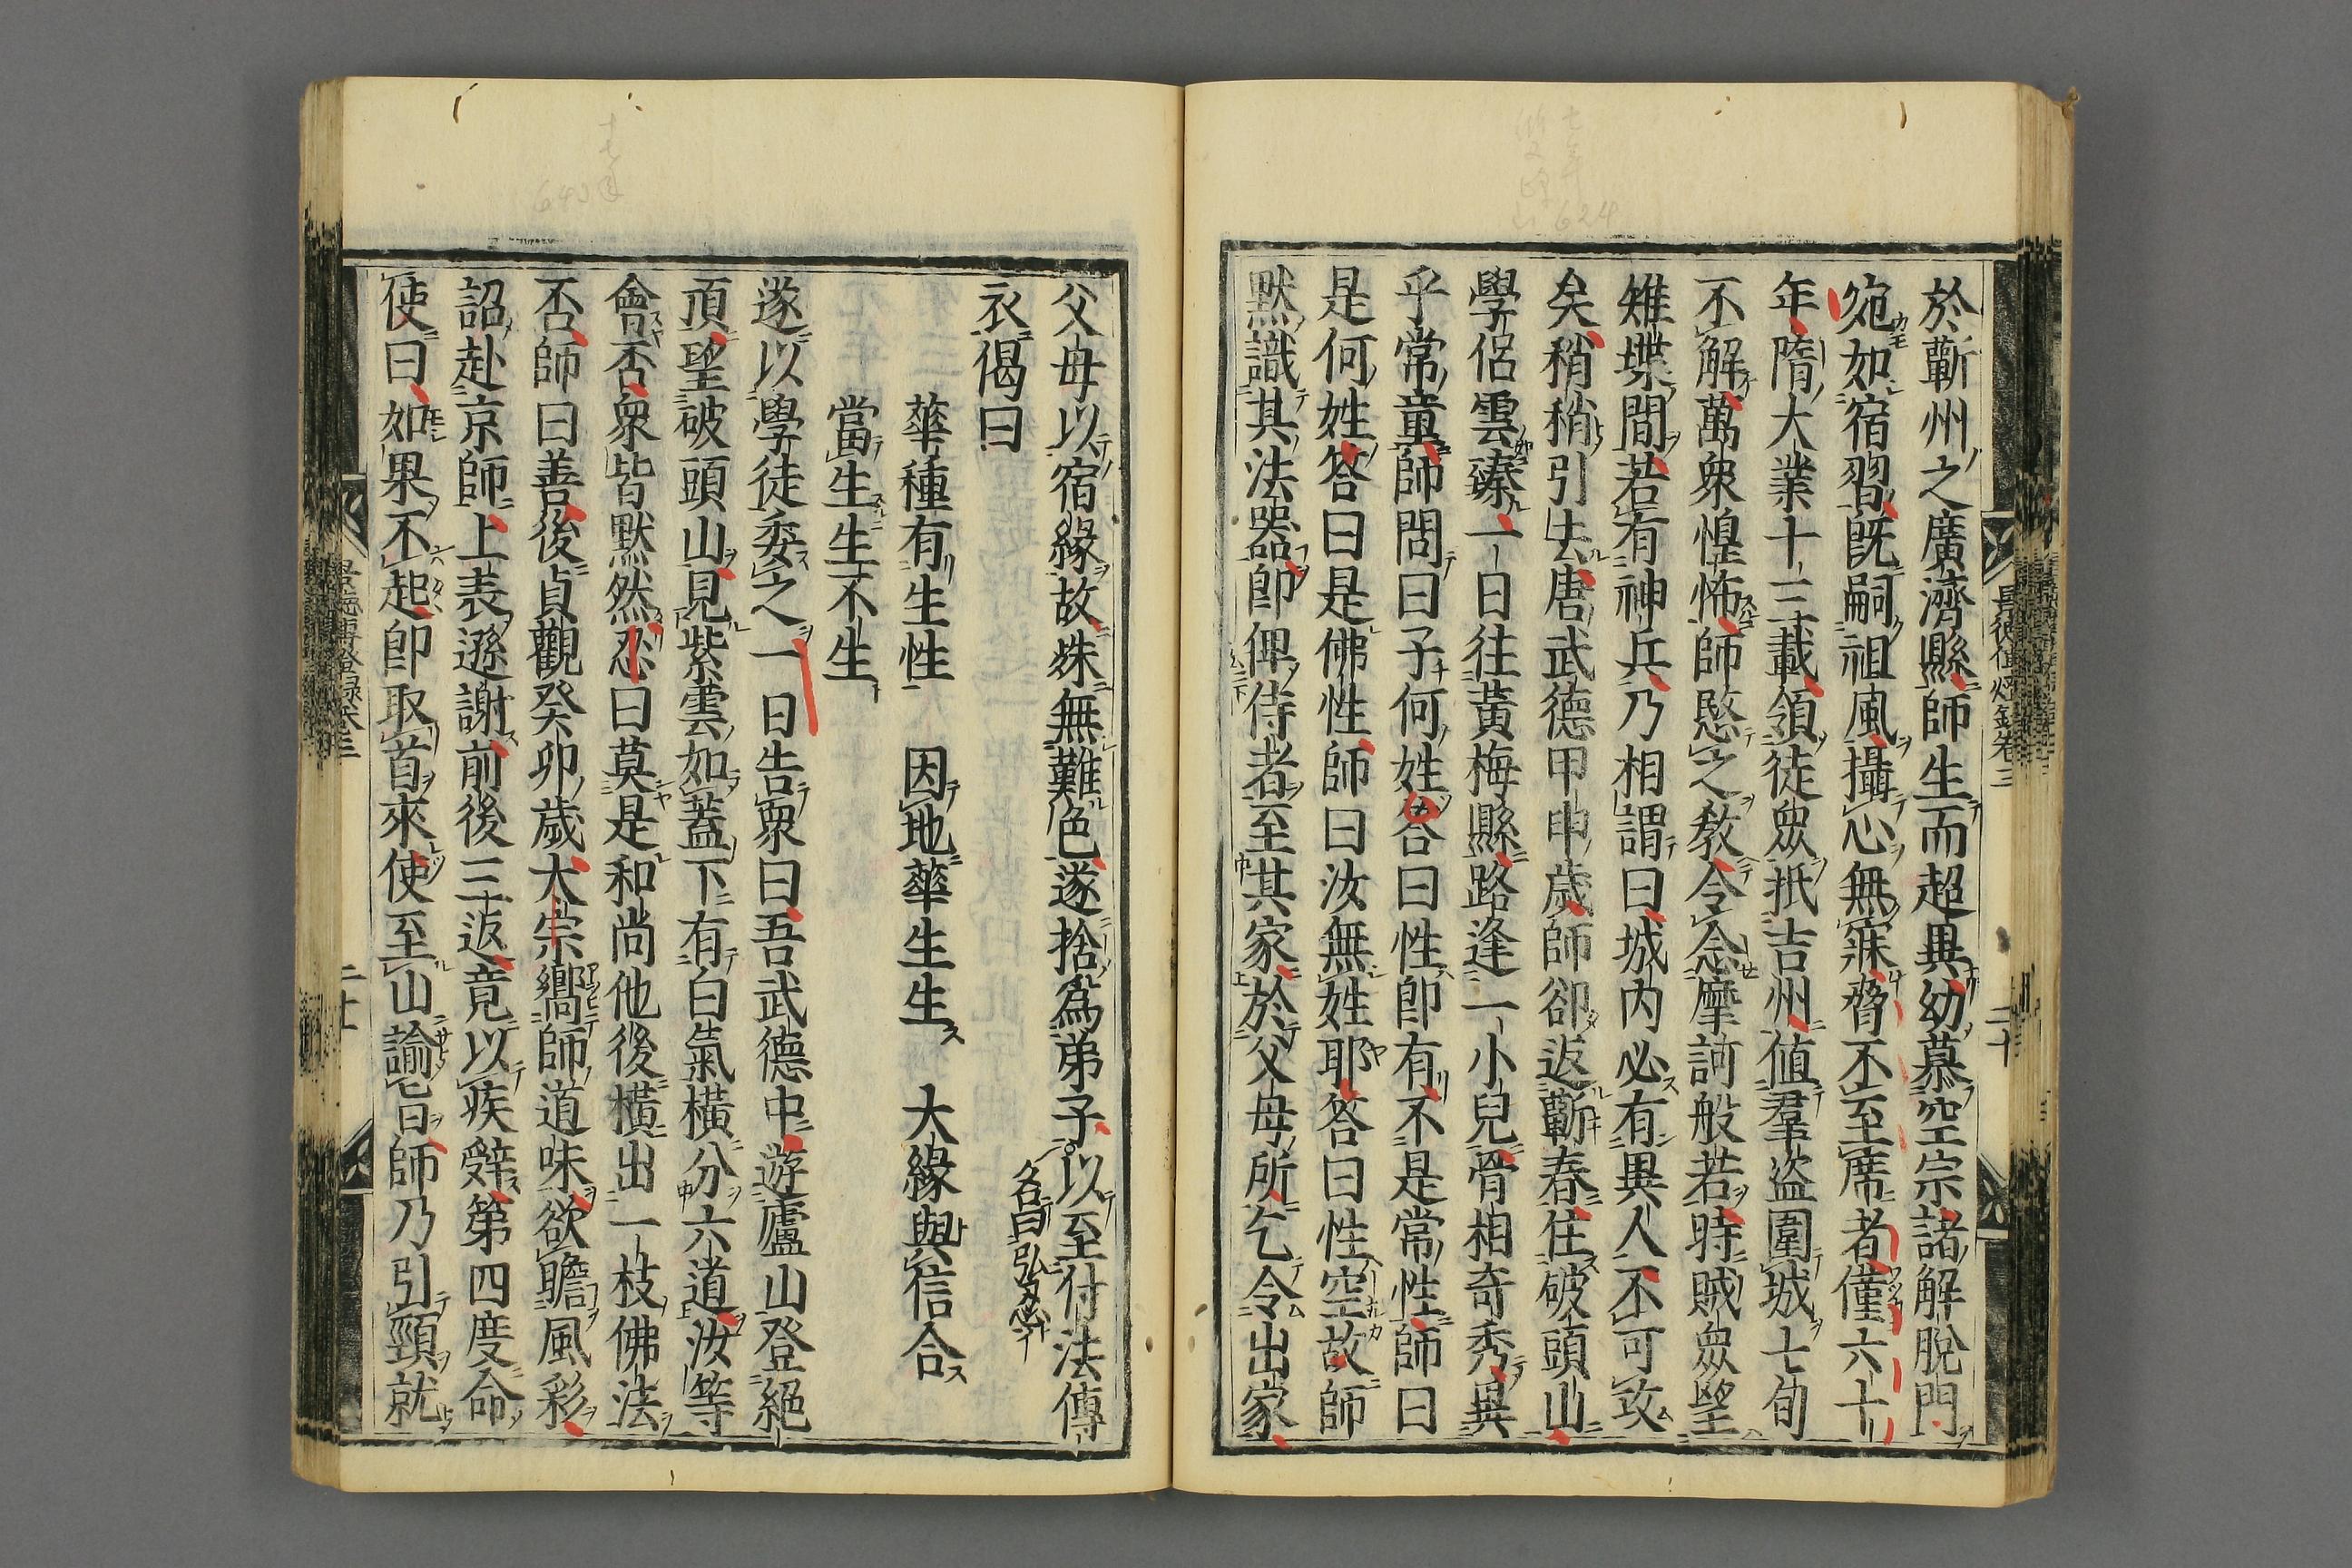 於蘄州之廣濟縣師生而超異幼慕空宗諸解脫門
宛如宿習既嗣祖風攝心無寐脅不至席者僅六十
年隋大業十三載領徒眾抵吉州值羣盜圍城七旬
不解萬眾惶怖師愍之教令念摩訶般若時賊眾望
雉堞間若有神兵乃相謂曰城內必有異人不可攻
矣稍稍引去唐武德甲申歲師卻返蘄春住破頭山
學侶雲臻一日往黃梅縣路逢一小兒骨相奇秀異
乎常童師問曰子何姓答曰性即有不是常性師曰
是何姓答曰是佛性師曰汝無姓耶答曰性空故師
默識其法器即俾侍者至其家於父母所乞令出家
景德傳燈錄卷三
二十
父母以宿緣故殊無難色遂捨為弟子以至付法傳
名曰弘忍
衣偈曰
華種有生性　因地華生生　大緣與信合
當生生不生
遂以學徒委之一日告眾曰吾武德中遊廬山登絕
頂望破頭山見紫雲如蓋下有白氣橫分六道汝等
會否眾皆默然忍曰莫是和尚他後橫出一枝佛法
否師曰善後貞觀癸卯歲太宗嚮師道味欲瞻風彩
詔赴京師上表遜謝前後三返竟以疾辭第四度命
使曰如果不起即取首來使至山諭旨師乃引頸就
景德傳燈錄卷三